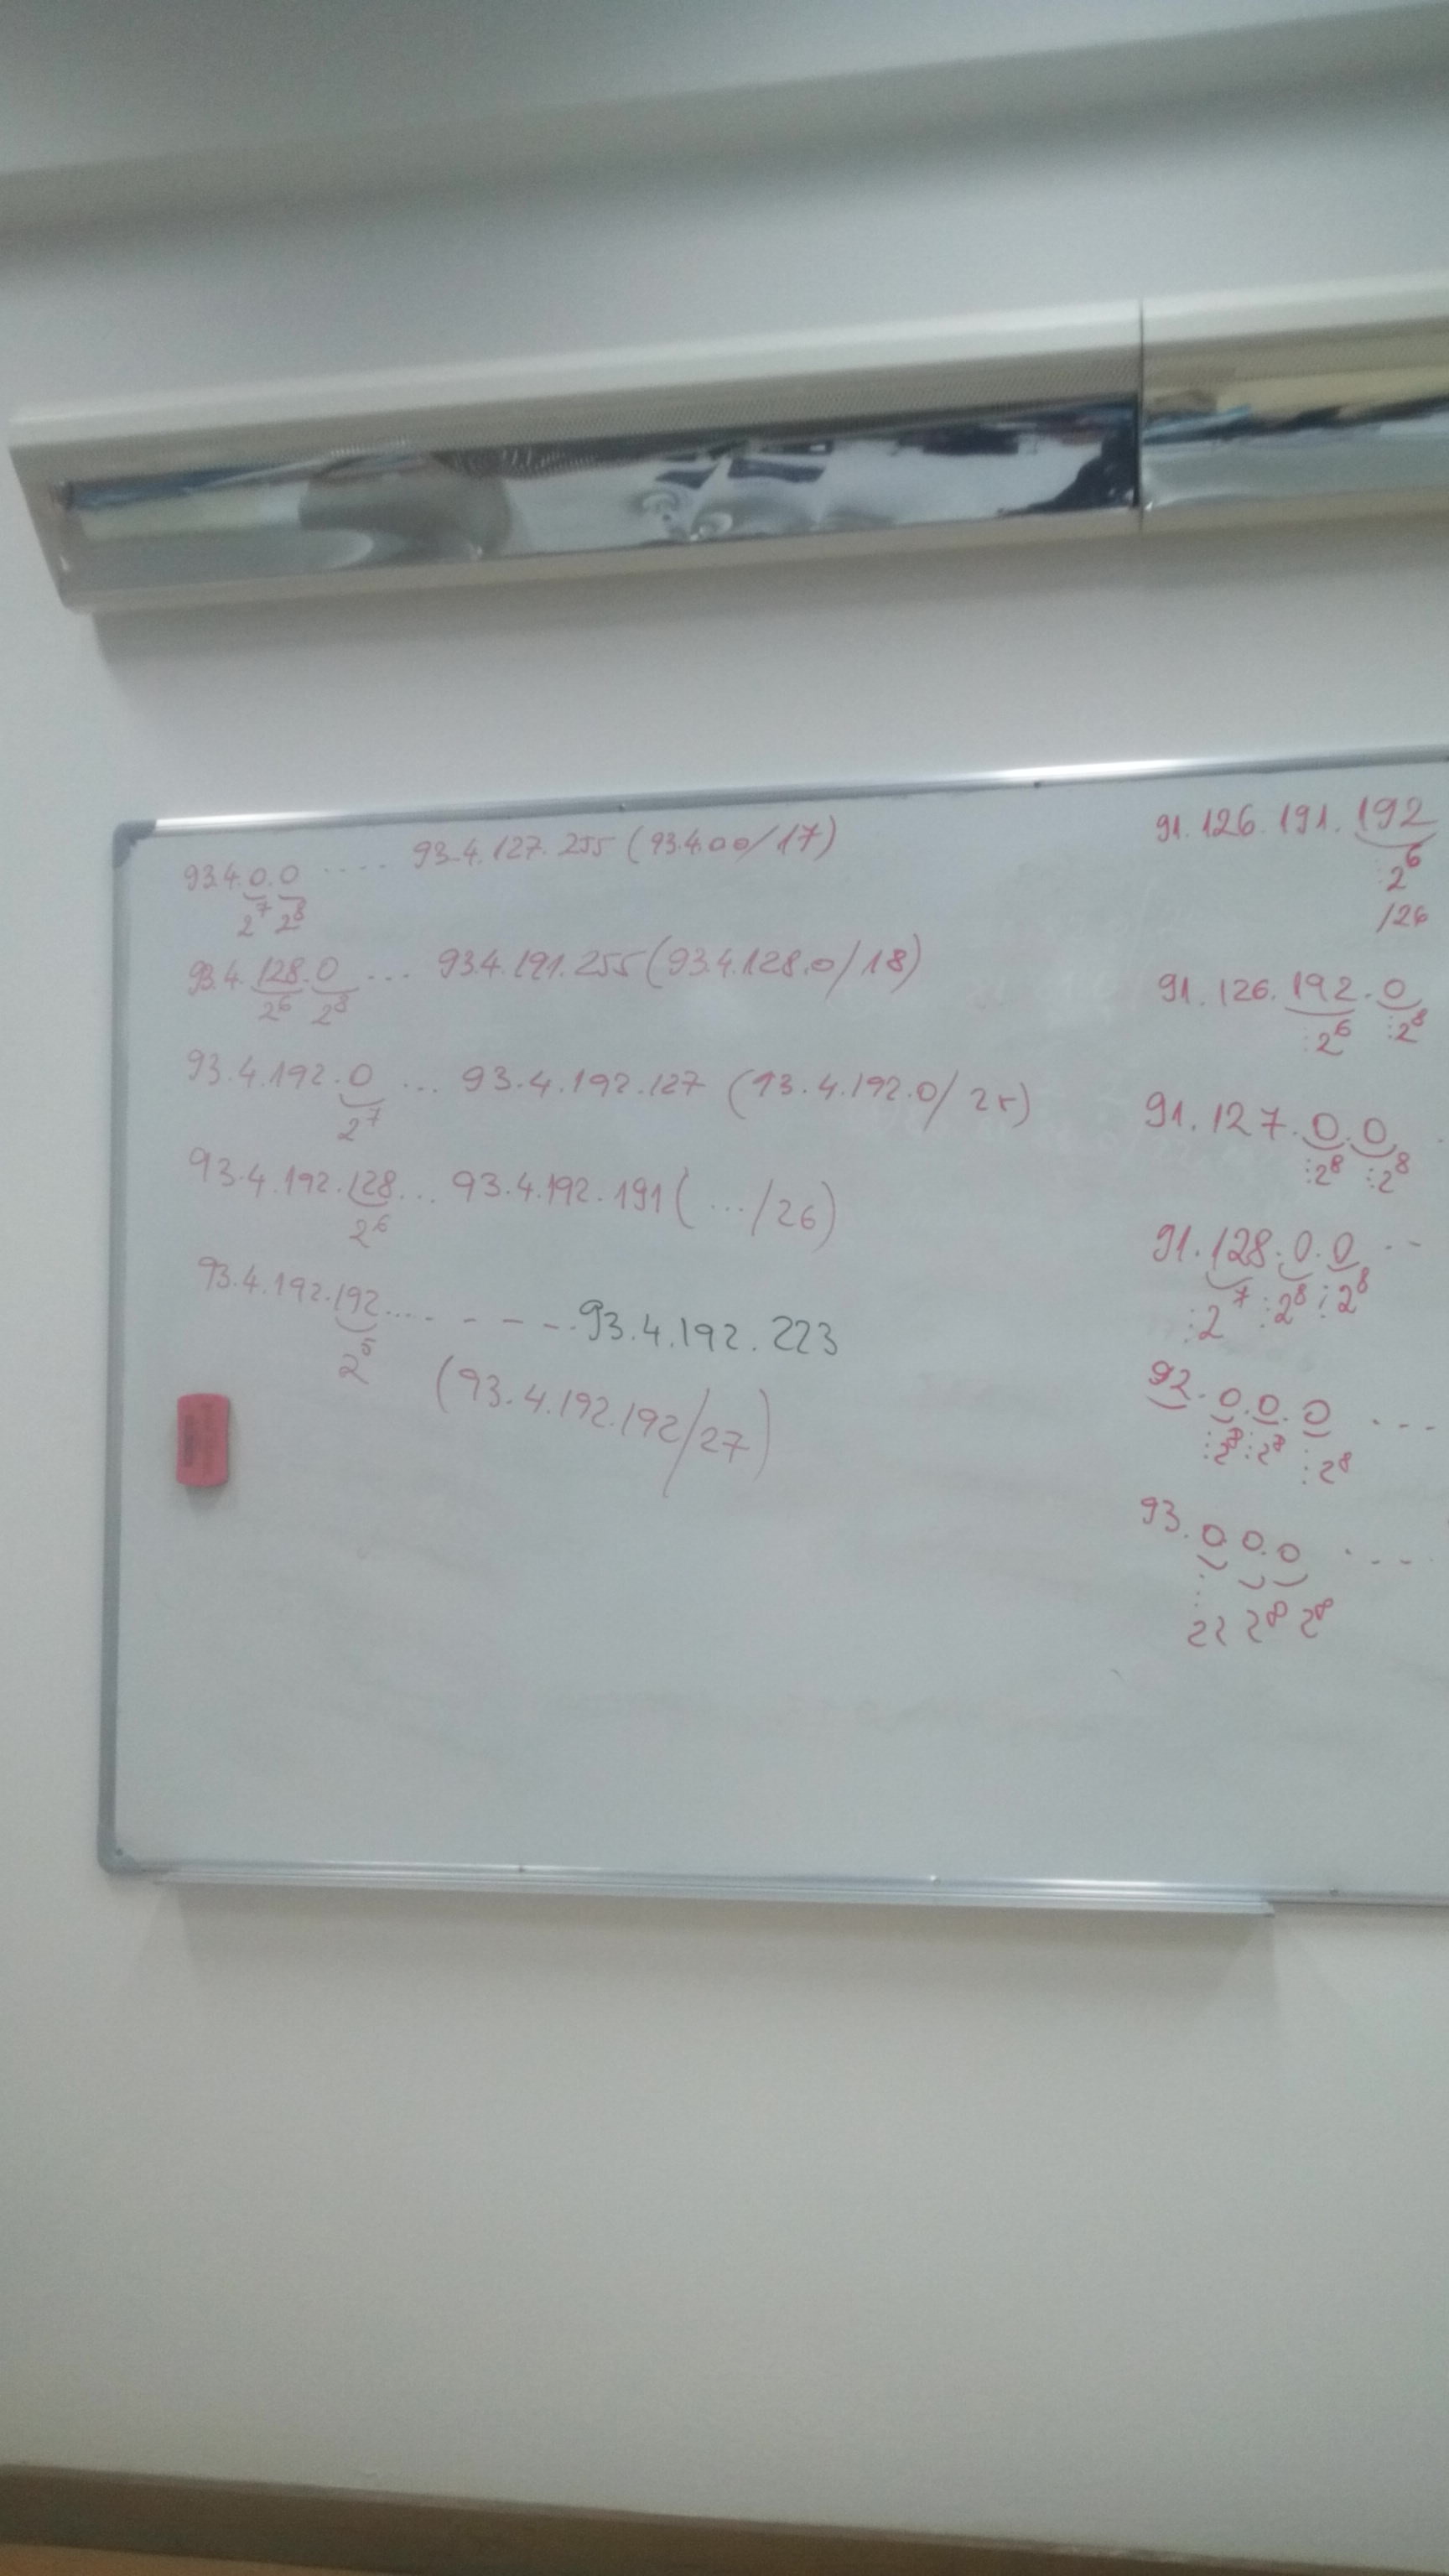 93.4.0.0 .... 93.4.127.255 (93.4.0.0/17)
2^7 2^8
93.4.128.0 ... 93.4.191.255 (93.4.128.0/18)
2^6 2^8
93.4.192.0 ... 93.4.192.127 (93.4.192.0/25)
2^7
93.4.192.128... 93.4.192.191 (.../26)
2^6
93.4.192.192...- - - -.93.4.192.223
2^5
(93.4.192.192/27)
91.126.191.192
:2^6
/26
91.126.192.0
:2^6 :2^8
91.127.0.0 .
:2^8 :2^8
91.128.0.0 ..
:2^7 :2^8 :2^8
92.0.0.0 ...
:2^8 :2^8 :2^8
93.0.0.0 ....
2^2 2^8 2^8